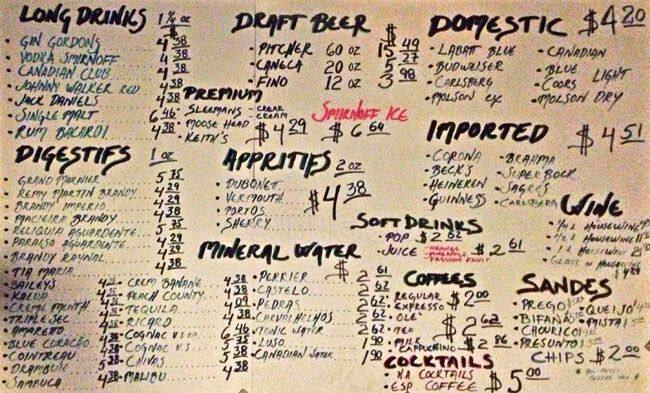 LONG DRINKS 1 1/4 oz
GIN GORDONS 4 38
VODKA SMIRNOFF 4 38
CANADIAN CLUB 4 38
JOHNNY WALKER RED 4 38
JACK DANIELS 4 38
SINGLE MALT 6 46
RUM BACARDI 4 38
DIGESTIFS 1 oz
GRAND MARNIER 5 35
REMY MARTIN BRANDY 4 29
BRANDY IMPERIO 4 29
MACIEIRA BRANDY 4 38
RELIQUIA AGUARDENTE 5 35
PARAISO AGUARDENTE 4 29
BRANDY RAYNAL 4 29
TIA MARIA 4 38
BAILEYS
KALUA
CREME MENTH
TRIPLE SEC
AMARETO
BLUE CORAÇÃO
COINTREAU
DRAMBUIE
SAMBUCA
CREM BANANE 4 38
PEACH COUNTY 4 38
TEQUILA 4 09
RICARD 4 38
COGNAC V.S.O.P. 6 46
COGNAC V.S 5 35
CHIVAS 4 38
MALIBU 4 38
DRAFT BEER
PITCHER 60 oz 15 49
CANECA 20 oz 5 27
FINO 12 oz 3 98
PREMIUM
SLEEMANS - CLEAR CREAM
MOOSE HEAD
KEITH'S $4 29
SMIRNOFF ICE
$6 64
APPRITIFS 2 oz
DUBONET
VERMOUTH
PORTOS
SHERRY
$4 38
MINERAL WATER $
PERRIER 2 61
CASTELO 2 62
PEDRAS 2 62
CARVALHELHOS 2 62
TONIC WATER 2 62
LUSO 1 90
CANADIAN WATER 1 90
SOFT DRINKS
POP $2 62
JUICE - ORANGE PINEAPPLE PASSION FRUIT $2 61
COFFEES
REGULAR
EXPRESSO $2 00
OLE'
TEA $2 62
MILK
CAPPUCINO $2 86
COCKTAILS
N.A. COCKTAILS
ESP. COFFEE $5 00
DOMESTIC $4 20
LABATT BLUE
BUDWEISER
CARLSBERG
MOLSON EX
CANADIAN
BLUE
COORS LIGHT
MOLSON DRY
IMPORTED $4 51
CORONA
BECK'S
HEINEKEN
GUINNESS
BRAHMA
SUPER BOCK
SAGRES
CARLSBERG
WINE
HOUSEWINE
HOUSEWINE
HOUSEWINE
GLASS
SANDES
PREGO
BIFANA
CHOURIÇO
PRESUNTO
QUEIJO
MISTA
CHIPS $2 00